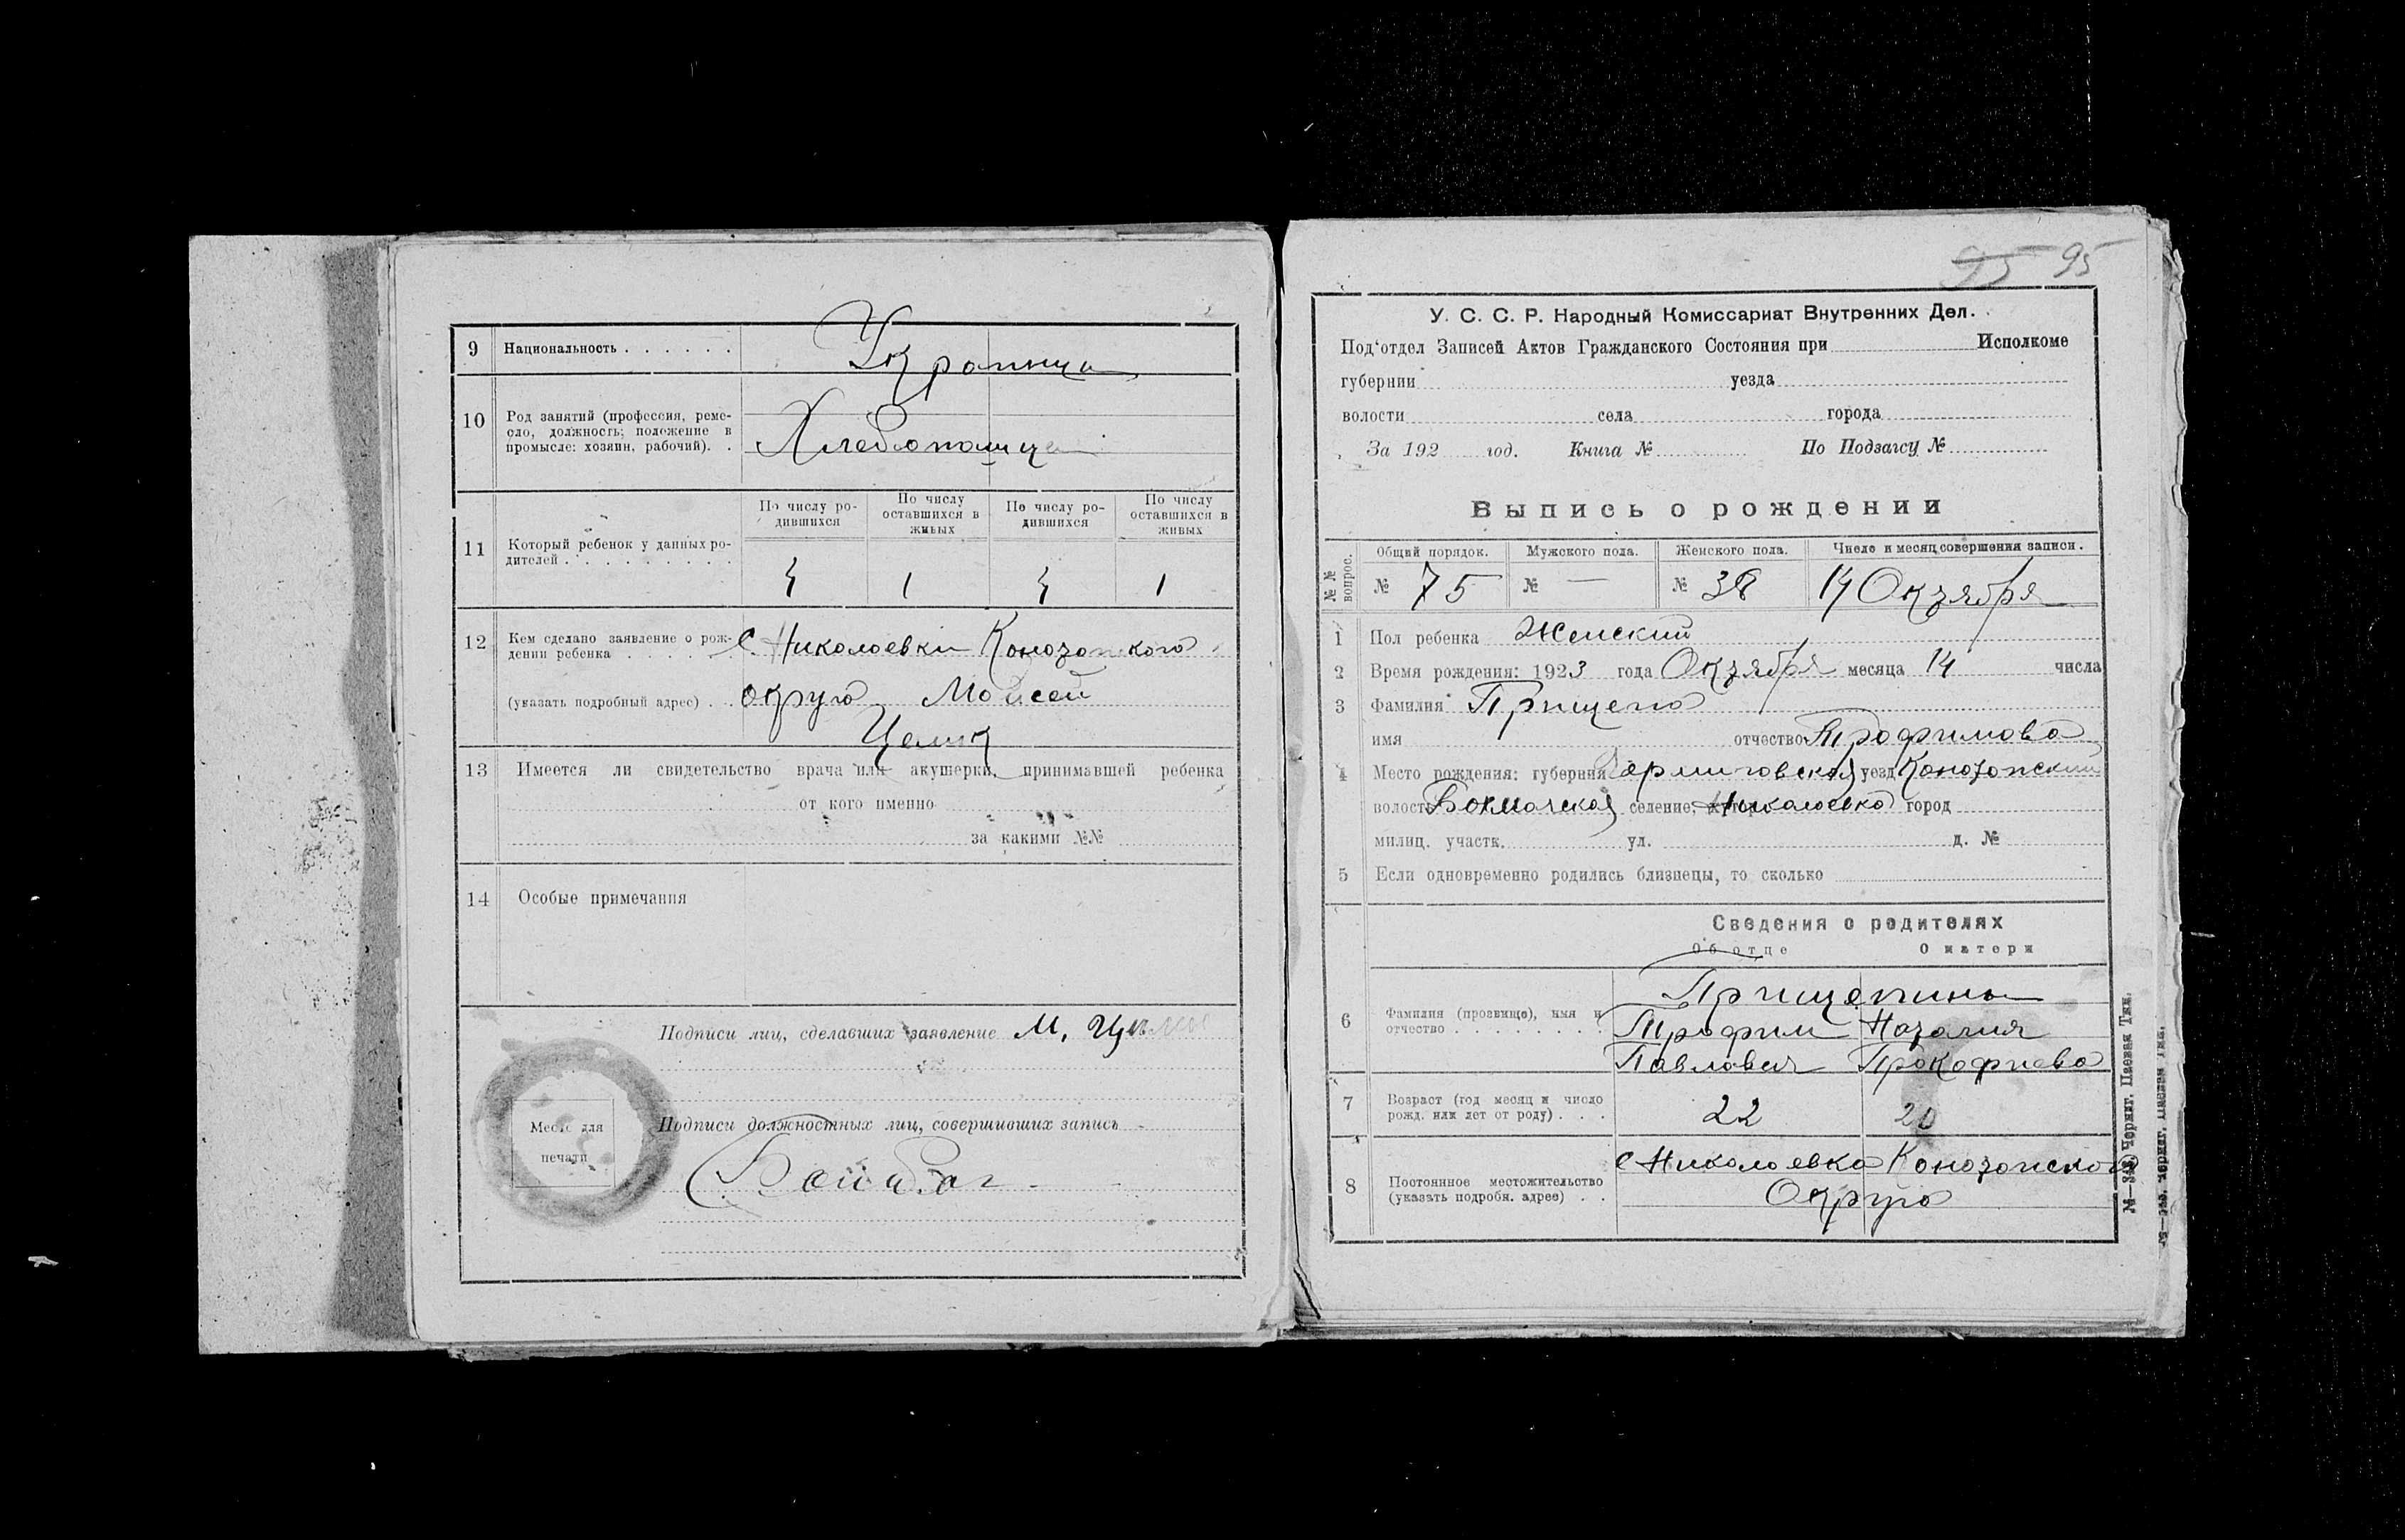 9 Национальность . . . . . . Украинци
10 Род занятий (профессия, реме-
сло, должность; положение в
промысле: хозяин, рабочий). . Хлебопашци
11 Который ребенок у данных ро-
дителей . . . . . . . . . .
По числу ро-
дившихся
По числу
оставшихся в
живых
По числу ро-
дившихся
По числу
оставшихся в
живых
1 1
12 Кем сделано заявление о рож-
дении ребенка . . . . . . С. Николоевки Конотопского
(указать подробный адрес) . . округа Мойсей
Целик
13 Имеется ли свидетельство врача или акушерки, принимавшей ребенка
от кого именно
за какими №№
14 Особые примечания
Подписи лиц, сделавших заявление М.
Подписи должностных лиц, совершивших запись
Место для
печати
95 95
У. С. С. Р. Народный Комиссариат Внутренних Дел.
Под'отдел Записей Актов Гражданского Состояния при Исполкоме
губернии уезда
волости села города
За 192 год. Книга № По Подзагсу №
Выпись о рождении
№№ вопрос.
Общий порядок. Мужского пола. Женского пола. Число и месяц совершения записи.
№ 75 № — № 38 14 Октября
1 Пол ребенка Женский
2 Время рождения: 1923 года Октября месяца 14 числа
3 Фамилия Прищепа
имя отчество Трофимова
4 Место рождения: губерния Черниговская уезд Конотопский
волость Бахмачская селение, хутор Николоевка город
милиц. участк. ул. д. №
5 Если одновременно родились близнецы, то сколько
Сведения о родителях
Об отце О матери
6 Фамилия (прозвище), имя и
отчество . . . . . . . . .
Прищепины
Трофим Наталия
Павлович Прокофиева
7 Возраст (год месяц и число
рожд. или лет от роду) . . . 22 20
8 Постоянное местожительство
(указать подробн. адрес) . .
с Николоевка Конотопского
Округа
Черниг. Паевая Тип.